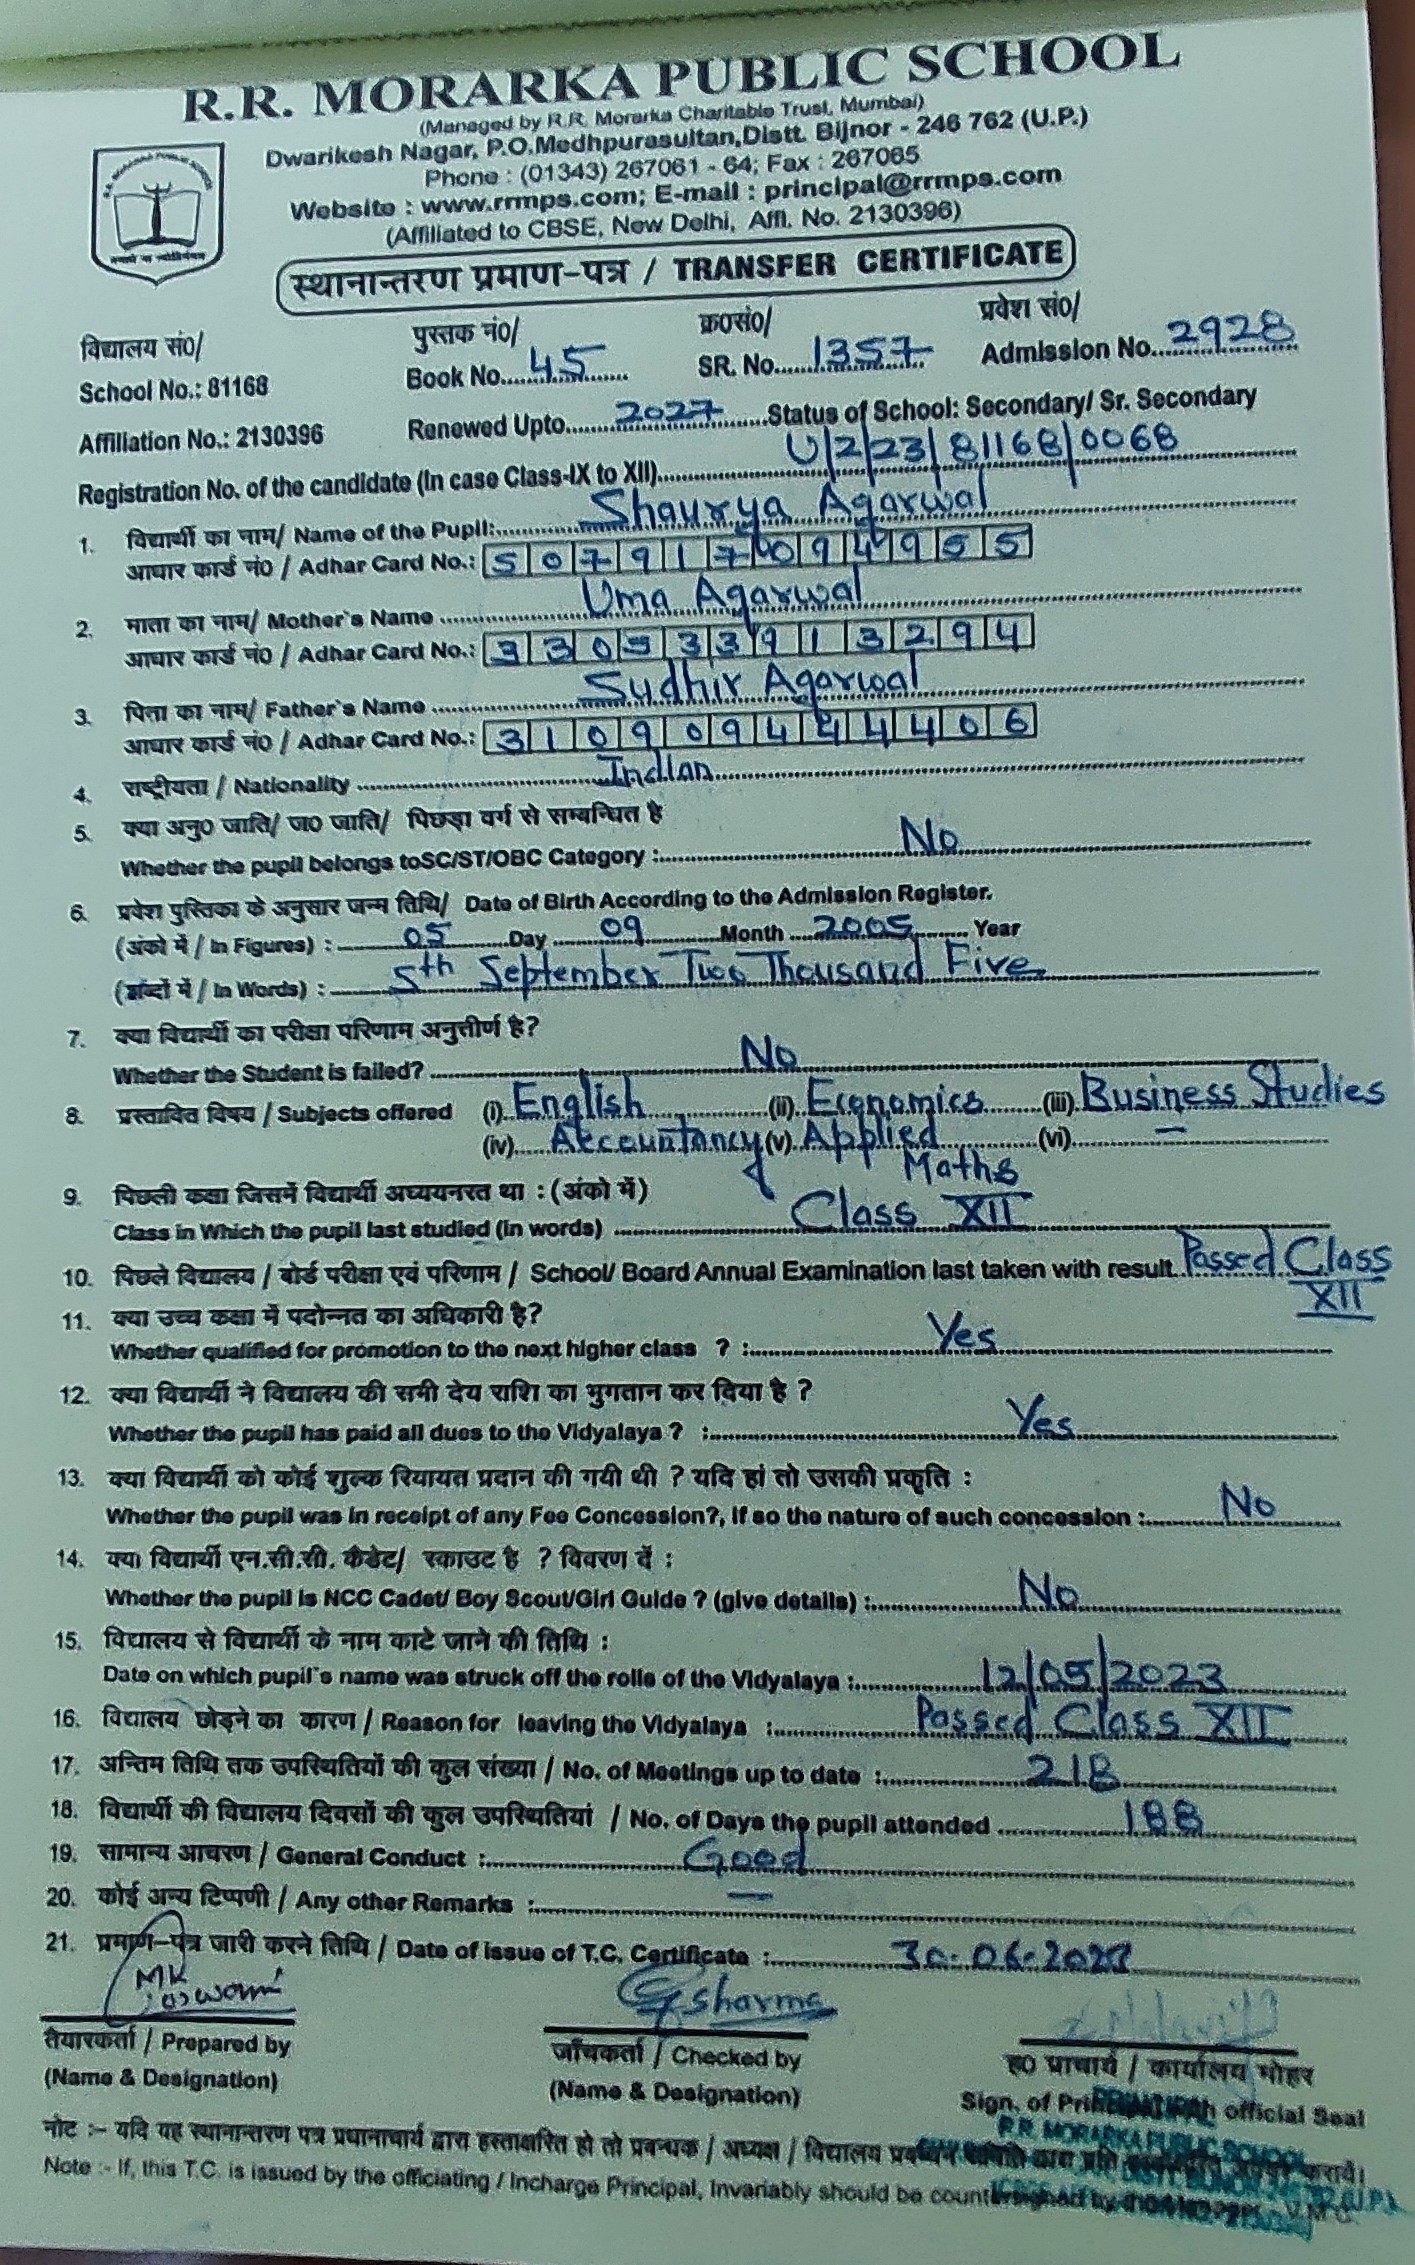 R.R. MORARKA PUBLIC SCHOOL
(Managed by R.R. Morarka Charitable Trust, Mumbai)
Dwarikesh Nagar, P.O.Medhpurasultan,Distt. Bijnor - 246 762 (U.P.)
Phone : (01343) 267061 - 64; Fax : 267065
Website : www.rrmps.com; E-mail : principal@rrmps.com
(Affiliated to CBSE, New Delhi, Affl. No. 2130396)
स्थानान्तरण प्रमाण-पत्र / TRANSFER CERTIFICATE
विद्यालय सं0/ पुस्तक नं0/ क्र0सं0/ प्रवेश सं0/
School No.: 81168 Book No. 45 SR. No. 1357 Admission No. 2928
Affiliation No.: 2130396 Renewed Upto 2027 Status of School: Secondary/ Sr. Secondary
Registration No. of the candidate (In case Class-IX to XII) U/2/23/81168/0068
1. विद्यार्थी का नाम/ Name of the Pupil: Shaurya Agarwal
आधार कार्ड नं0 / Adhar Card No.: 507917094955
2. माता का नाम/ Mother's Name Uma Agarwal
आधार कार्ड नं0 / Adhar Card No.:
3. पिता का नाम/ Father's Name Sudhir Agarwal
आधार कार्ड नं0 / Adhar Card No.: 310909444406
4. राष्ट्रीयता / Nationality Indian
5. क्या अनु0 जाति/ ज0 जाति/ पिछड़ा वर्ग से सम्बन्धित है
Whether the pupil belongs toSC/ST/OBC Category : No
6. प्रवेश पुस्तिका के अनुसार जन्म तिथि/ Date of Birth According to the Admission Register.
(अंको में / In Figures) : 05 Day 09 Month 2005 Year
(शब्दों में / In Words) : 5th September Two Thousand Five
7. क्या विद्यार्थी का परीक्षा परिणाम अनुत्तीर्ण है?
Whether the Student is failed? No
8. प्रस्तावित विषय / Subjects offered (i) English (ii) Economics (iii) Business Studies
(iv) Accountancy (v) Applied (vi) –
Maths
9. पिछली कक्षा जिसमें विद्यार्थी अध्ययनरत था : (अंको में)
Class in Which the pupil last studied (in words) Class XII
10. पिछले विद्यालय / बोर्ड परीक्षा एवं परिणाम / School/ Board Annual Examination last taken with result Passed Class
XII
11. क्या उच्च कक्षा में पदोन्नत का अधिकारी है?
Whether qualified for promotion to the next higher class ? : Yes
12. क्या विद्यार्थी ने विद्यालय की सभी देय राशि का भुगतान कर दिया है ?
Whether the pupil has paid all dues to the Vidyalaya ? : Yes
13. क्या विद्यार्थी को कोई शुल्क रियायत प्रदान की गयी थी ? यदि हां तो उसकी प्रकृति :
Whether the pupil was in receipt of any Fee Concession?, If so the nature of such concession : No
14. क्या विद्यार्थी एन.सी.सी. कैडेट/ स्काउट है ? विवरण दें :
Whether the pupil is NCC Cadet/ Boy Scout/Girl Guide ? (give details) : No
15. विद्यालय से विद्यार्थी के नाम काटे जाने की तिथि :
Date on which pupil's name was struck off the rolls of the Vidyalaya : 12/05/2023
16. विद्यालय छोड़ने का कारण / Reason for leaving the Vidyalaya : Passed Class XII
17. अन्तिम तिथि तक उपस्थितियों की कुल संख्या / No. of Meetings up to date : 218
18. विद्यार्थी की विद्यालय दिवसों की कुल उपस्थितियां / No. of Days the pupil attended 188
19. सामान्य आचरण / General Conduct : Good
20. कोई अन्य टिप्पणी / Any other Remarks : –
21. प्रमाण-पत्र जारी करने तिथि / Date of issue of T.C. Certificate : 30-06-2023
MK Goswami G Sharma
तैयारकर्ता / Prepared by जाँचकर्ता / Checked by ह0 प्राचार्य / कार्यालय मोहर
(Name & Designation) (Name & Designation) Sign. of Principal with official Seal
PRINCIPAL
R.R. MORARKA PUBLIC SCHOOL
नोट :- यदि यह स्थानान्तरण पत्र प्रधानाचार्य द्वारा हस्ताक्षरित हो तो प्रबन्धक / अध्यक्ष / विद्यालय प्रबन्धन समिति द्वारा प्रति करायें।
Note :- If, this T.C. is issued by the officiating / Incharge Principal, Invariably should be countersigned by V.M.C.